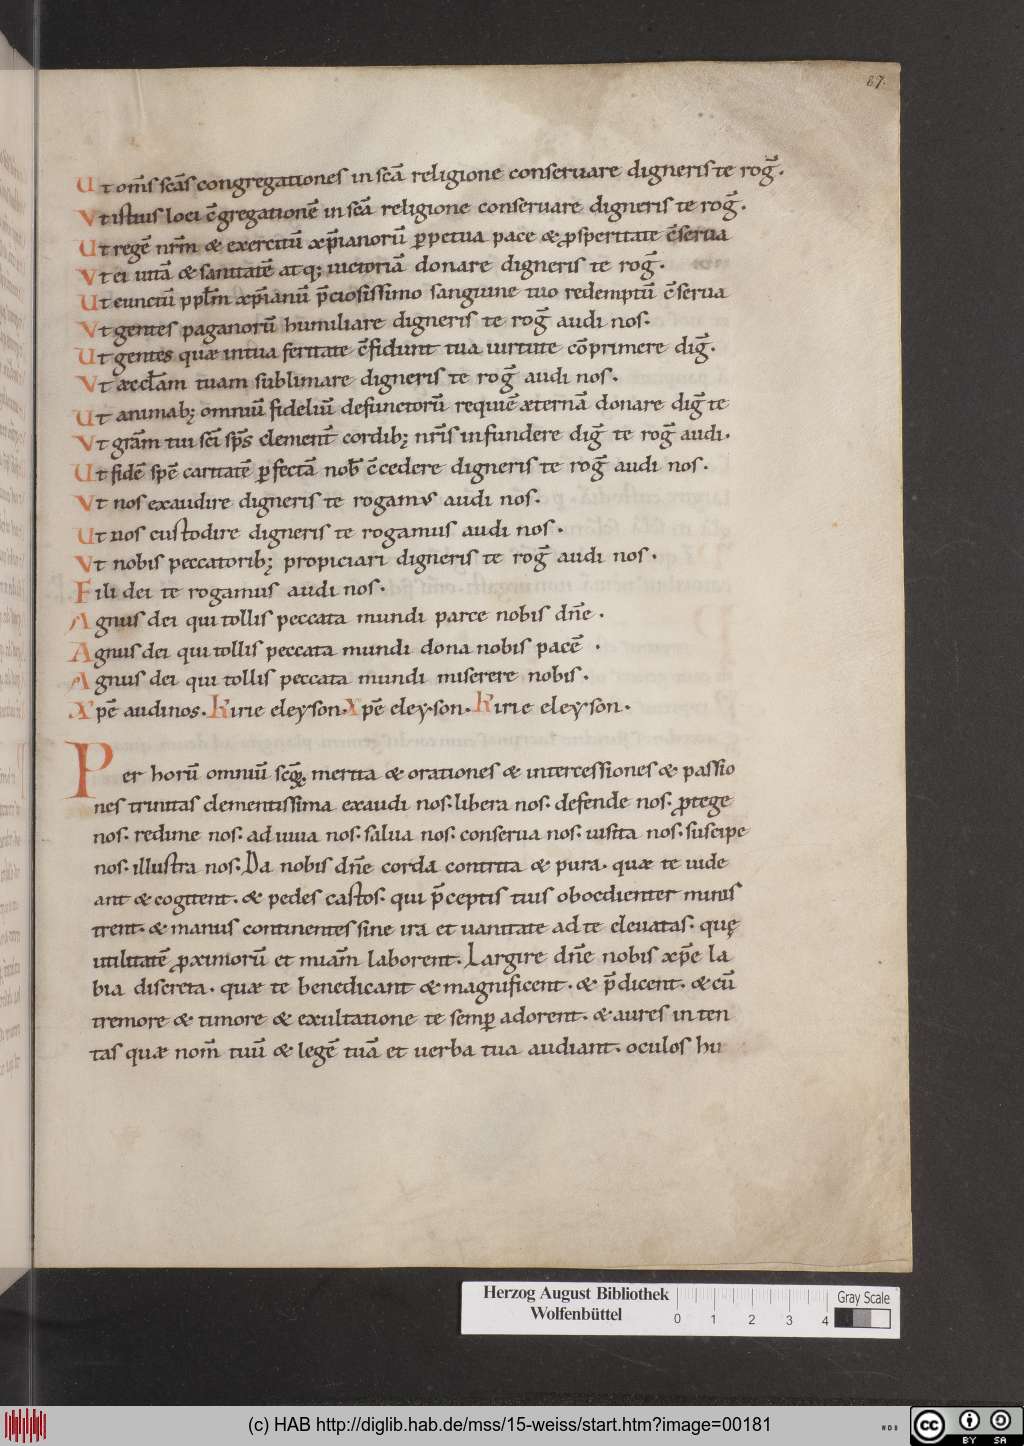 87.
Ut om̅s sc̅as congregationes in sc̅a religione conseruare digneris te rog̅.
Vt istius loci c̅gregatione̅ in sc̅a religione conseruare digneris te rog̅.
Ut rege̅ nr̅m & exercitu̅ xp̅ianoru̅ ꝑpetua pace & ꝓsperitate c̅serua
Vt ei uita̅ & sanitate̅ atq; uictoria̅ donare digneris te rog̅.
Ut cunctu̅ ppl̅m xp̅ianu̅ p̅ciosissimo sanguine tuo redemptu̅ c̅serua
Vt gentes paganoru̅ humiliare digneris te rog̅ audi nos.
Ut gentes quæ in tua feritate c̅fidunt tua uirtute co̅primere dig̅.
Vt æccl̅am tuam sublimare digneris te rog̅ audi nos.
Ut animab; omniu̅ fideliu̅ defunctoru̅ requie̅ æterna̅ donare dig̅ te
Vt gr̅am tui sc̅i sp̅s clement̅ cordib; nr̅is infundere dig̅ te rog̅ audi.
Ut fide̅ spe̅ caritate̅ ꝑfecta̅ nob̅ c̅cedere digneris te rog̅ audi nos.
Vt nos exaudire digneris te rogamus audi nos.
Ut nos custodire digneris te rogamus audi nos.
Vt nobis peccatorib; propiciari digneris te rog̅ audi nos.
Fili dei te rogamus audi nos.
Agnus dei qui tollis peccata mundi parce nobis dn̅e.
Agnus dei qui tollis peccata mundi dona nobis pace̅ .
Agnus dei qui tollis peccata mundi miserere nobis.
Xp̅e audi nos. Kirie eleyson. Xp̅e eleyson. Kirie eleyson.
Per horu̅ omniu̅ sc̅oꝝ merita & orationes & intercessiones & passio
nes trinitas clementissima exaudi nos. libera nos. defende nos. ꝓtege
nos. redime nos. adiuua nos. salua nos. conserua nos. uisita nos. suscipe
nos. illustra nos. Da nobis dn̅e corda contrita & pura. quæ te uide
ant & cogitent. & pedes castos. qui p̅ceptis tuis oboedienter minis
trent. & manus continentes sine ira et uanitate ad te eleuatas. quę
utilitate̅ ꝓximoru̅ et miam̅ laborent. Largire dn̅e nobis xp̅e la
bia discreta. quæ te benedicant & magnificent. & p̅dicent. & cu̅
tremore & timore & exultatione te semꝑ adorent. & aures inten
tas quæ nom̅ tuu̅ & lege̅ tua̅ et uerba tua audiant. oculos hu
Herzog August Bibliothek
Wolfenbüttel
0 1 2 3 4
Gray Scale
(c) HAB http://diglib.hab.de/mss/15-weiss/start.htm?image=00181
WDB
cc BY SA